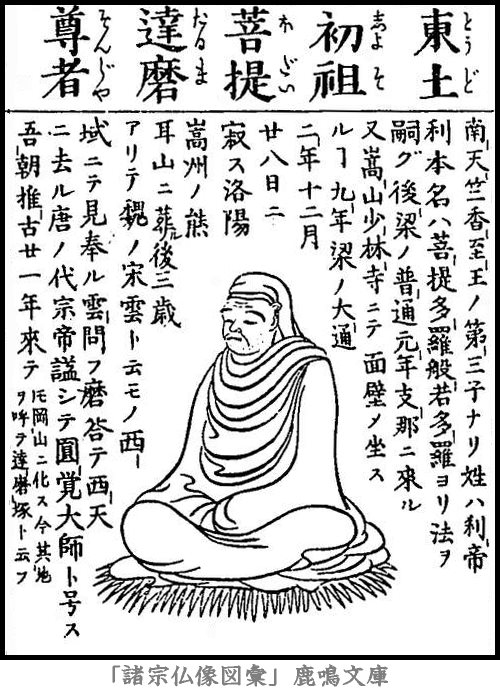 東土
とうど
初祖
しよそ
菩提
ぼだい
達磨
だるま
尊者
そんじや
南天竺香至王ノ第三子ナリ姓ハ利帝
利本名ハ菩提多羅般若多羅ヨリ法ヲ
嗣グ後梁ノ普通元年支那ニ來ル
又嵩山少林寺ニテ面壁ノ坐ス
ルヿ九年梁ノ大通
二年十二月
廿八日ニ
寂ス洛陽
嵩州ノ熊
耳山ニ葬ル後三歳
アリテ魏ノ宋雲ト云モノ西
域ニテ見奉ル雲問フ磨答テ西天
ニ去ル唐ノ代宗帝謚シテ圓覚大師ト号ス
吾朝推古廿一年來テ
岡山ニ化ス今其地
ヲ呼ヲ達磨塚ト云フ
「諸宗仏像図彙」鹿鳴文庫